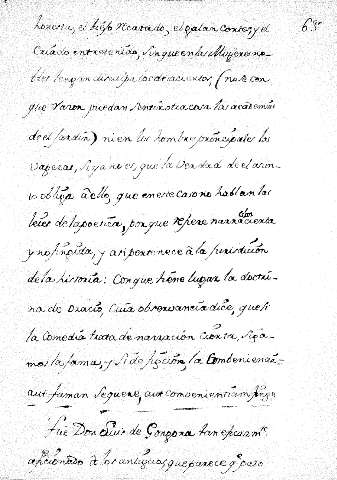 honesta, el biejo recatado, el galan Cortes, y el
Criado entretenido, sin que en las Mugeres no-
bles tengan disculpa los desaciertos, (no se con
que raçon puedan sentir otra cosa los academi
de el Jardin) ni en los hombres principales las
vageças, si ya no es, que la verdad de el asun-
to obliga à ello, que en ese caso no hablan las
leies de la poesia, porque refiere narracion cierta
y no fingida, y asi pertenece à la jurisdicion
de la historia: Con que tiene lugar la doctri-
na de Oracio, Cuia observancia dice, que si
la Comedia trata de narracion Cierta, siga-
mos la fama, y si de ficcion, la Combeniencia-
aut famam sequere, aut convenientiam finge
Fue Don Luis de Gongora tan
aficionado à los antiguos que parece q̃ paso
63